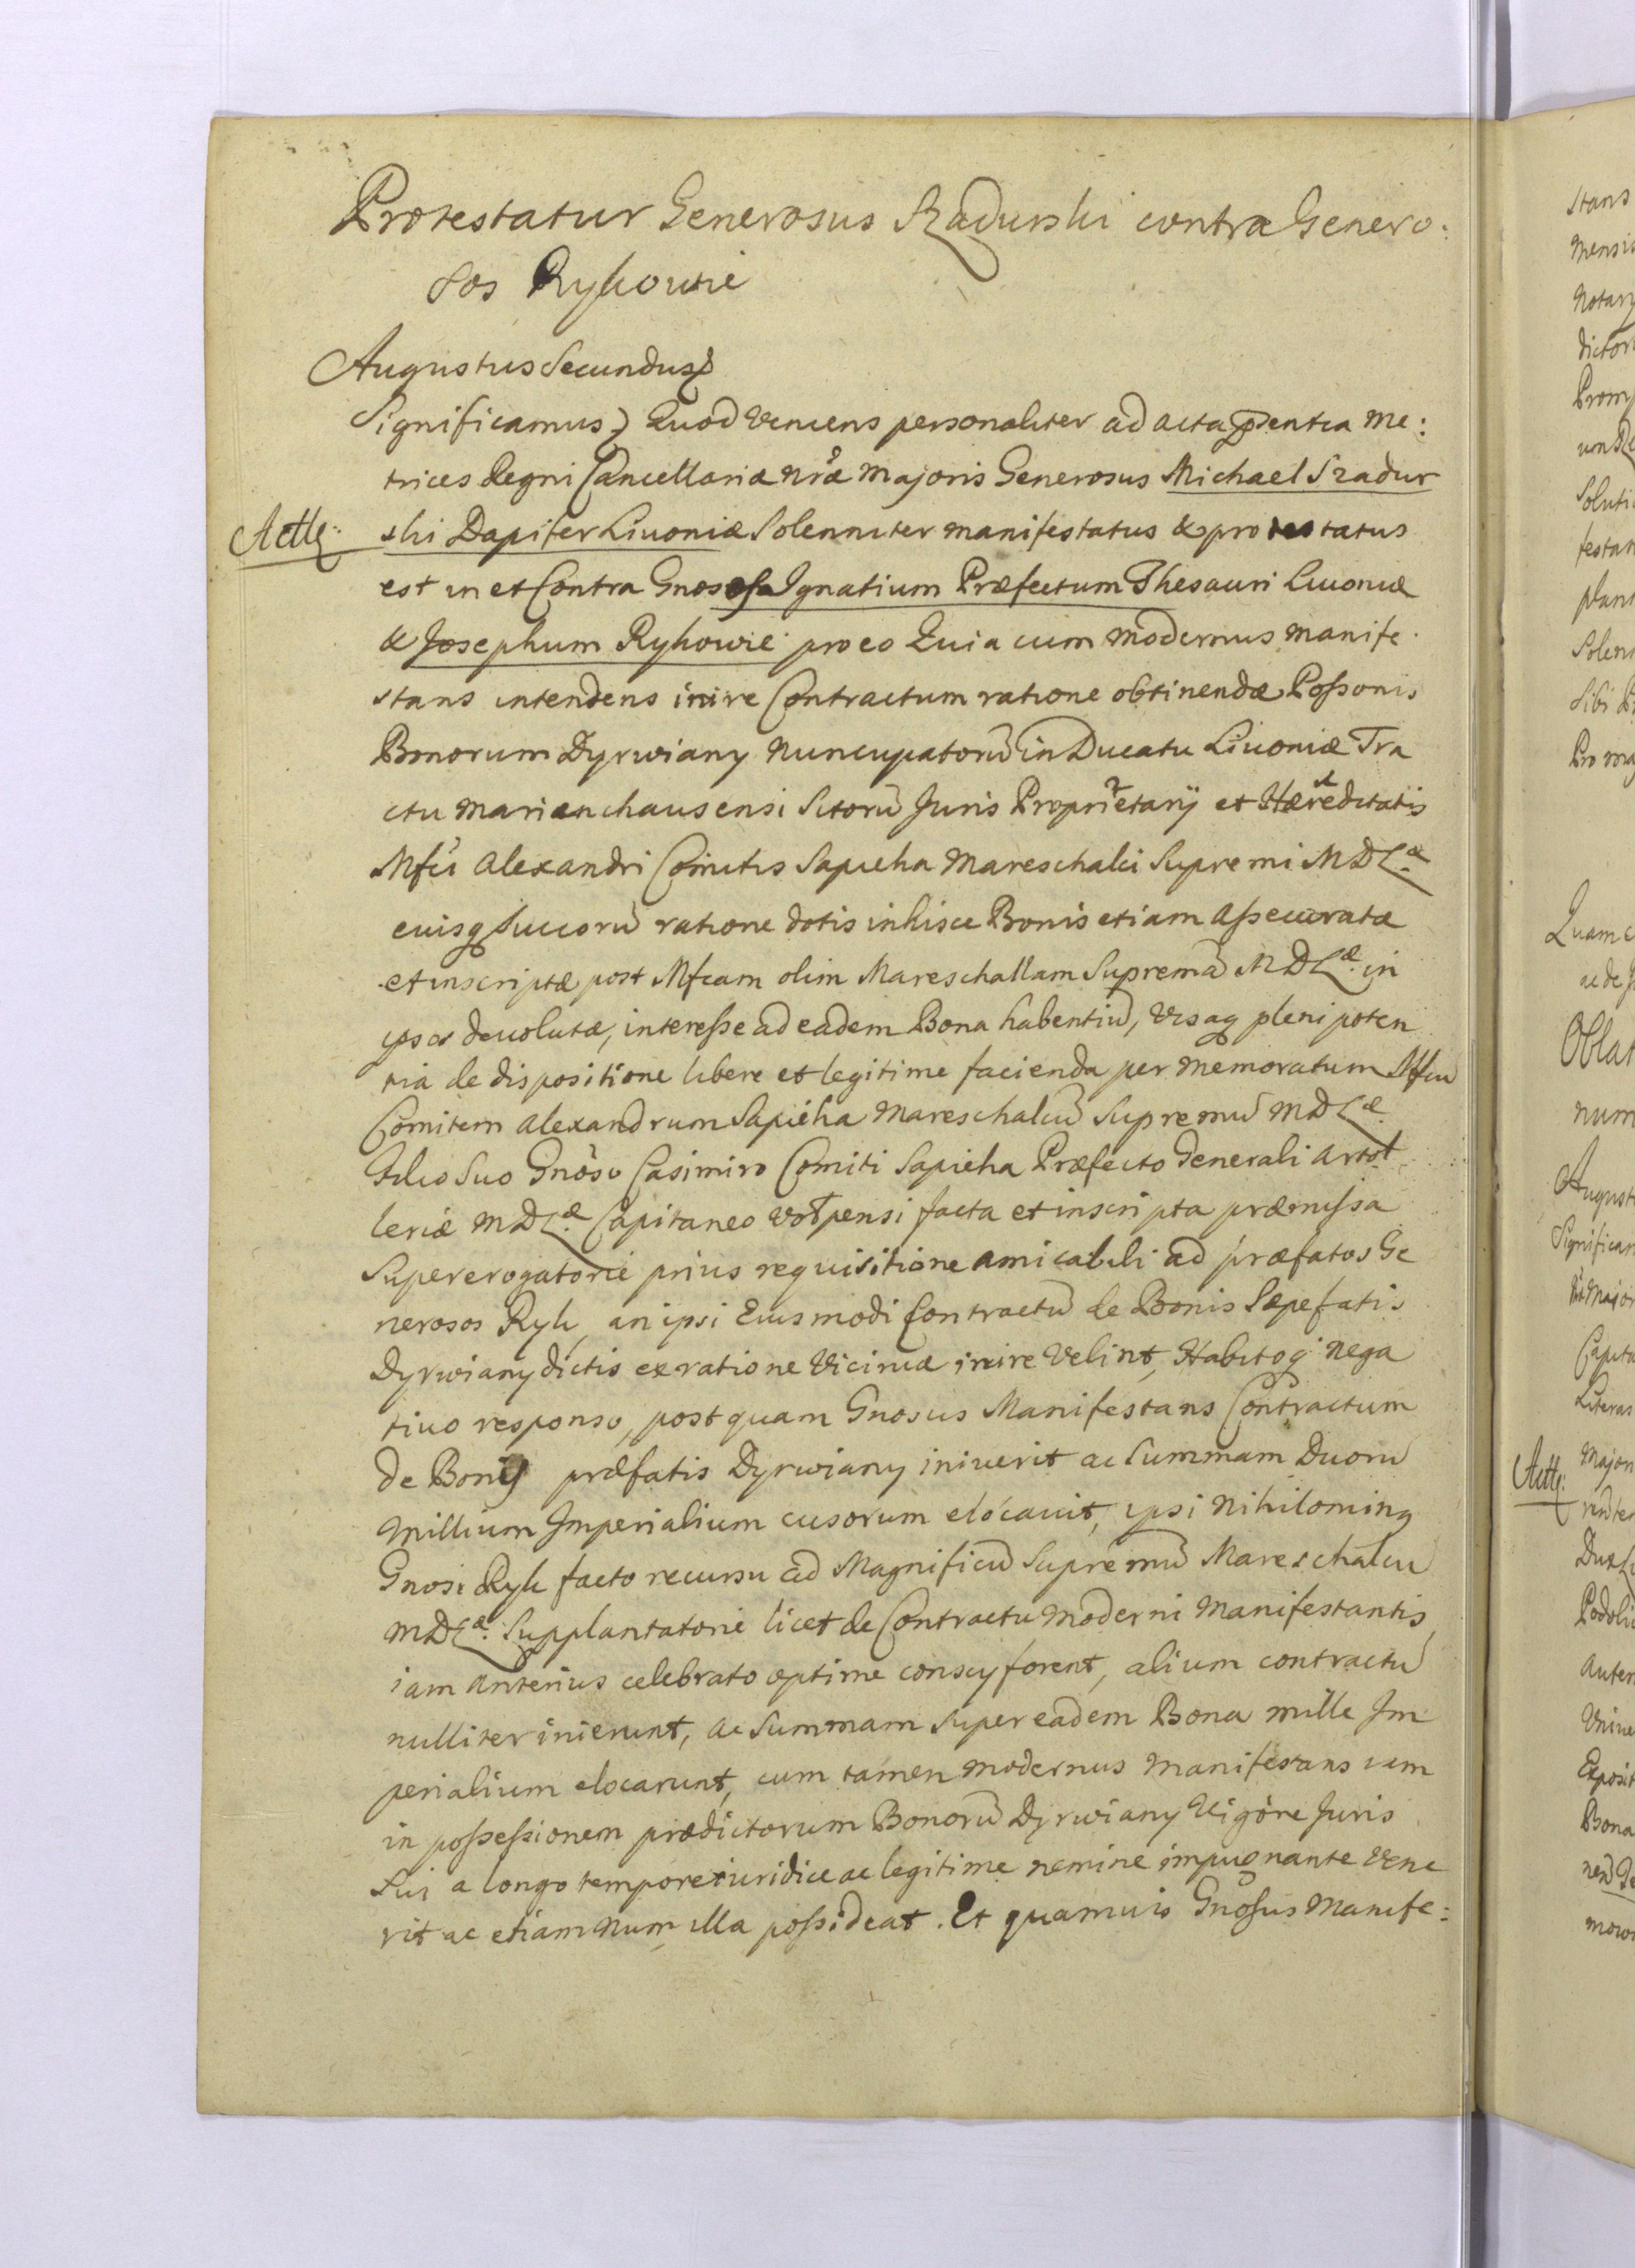 Protestatur Generosus Szadurski contra Genero:
sos Rykowie
Augustus Secundus
Significamus) Quod Veniens personaliter ad acta pntia Me:
trices Regni Cancellariæ nræ Majoris Generosus Michael Szadur
Acttg: ski Dapifer Livoniæ Solenniter manifestatus & protestatus
est in et Contra Gnosos Ignatium Præfectum Thesauri Livoniæ
& Josephum Rykowie pro eo Quia cum modernus manife
stans intendens inire Contractum ratione obtinendæ Possonis
Bonorum Dyrwiany nuncupatorũ in Ducatu Livoniæ Tra
ctu Marienchausensi Sitorũ Juris Proprietarÿ et Hæreditatis
Mfci Alexandri Comitis Sapieha Mareschalci Supremi M D L.æ
eiusq Succorũ ratione dotis in hisce Bonis etiam assecuratæ
et inscriptæ post Mfcam olim Mareschallam Supremã M D L.æ in
ipsos devolutæ, interesse ad eadem Bona habentiũ, Visaq plenipoten
tia de dispositione libere et legitime facienda per memoratum Mfcũ
Comitem Alexandrum Sapieha Mareschalcũ Supremũ M D L.æ
Filio Suo Gnoso Casimiro Comiti Sapieha Præfecto Generali Artol
leriæ M D L.æ Capitaneo Wołpensi facta et inscripta præmissa
Supererogatorie prius requisitione amicabili ad præfatos Ge
nerosos Ryk, an ipsi Eiusmodi Contractũ de Bonis Sæpefatis
Dyrwiany dictis ex ratione Viciniæ inire Velint, Habitoq nega
tivo responso, postquam Gnosus Manifestans Contractum
de Bonis præfatis Dyrwiany iniverit ac Summam Duorũ
Millium Imperialium cusorum elocavit, ipsi nihilominq
Gnosi Ryk facto recursu ad Magnificũ Supremũ Mareschalcũ
M D L.æ Supplantatorie licet de Contractu moderni Manifestantis
iam anterius celebrato optime conscÿ forent, alium contractũ
nulliter inierunt, ac Summam super eadem Bona mille Im
perialium elocarunt, cum tamen modernus manifestans iam
in possessionem prædictorum Bonorũ Dyrwiany Vigore Juris
Sui a longo tempore iuridice ac legitime nemine impugnante Vene
rit ac etiam num illa possideat. Et quamvis Gnosus Manife: